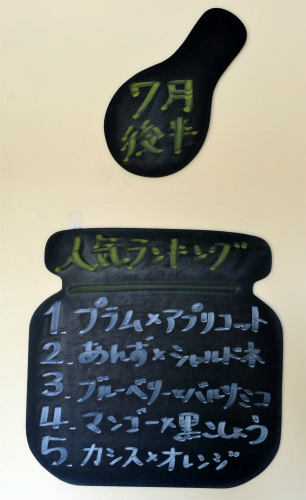 7月
後半
人気ランキング
1. プラム×アプリコット
2. あんず×シャルドネ
3. ブルーベリー×バルサミコ
4. マンゴー×黒こしょう
5. カシス×オレンジ